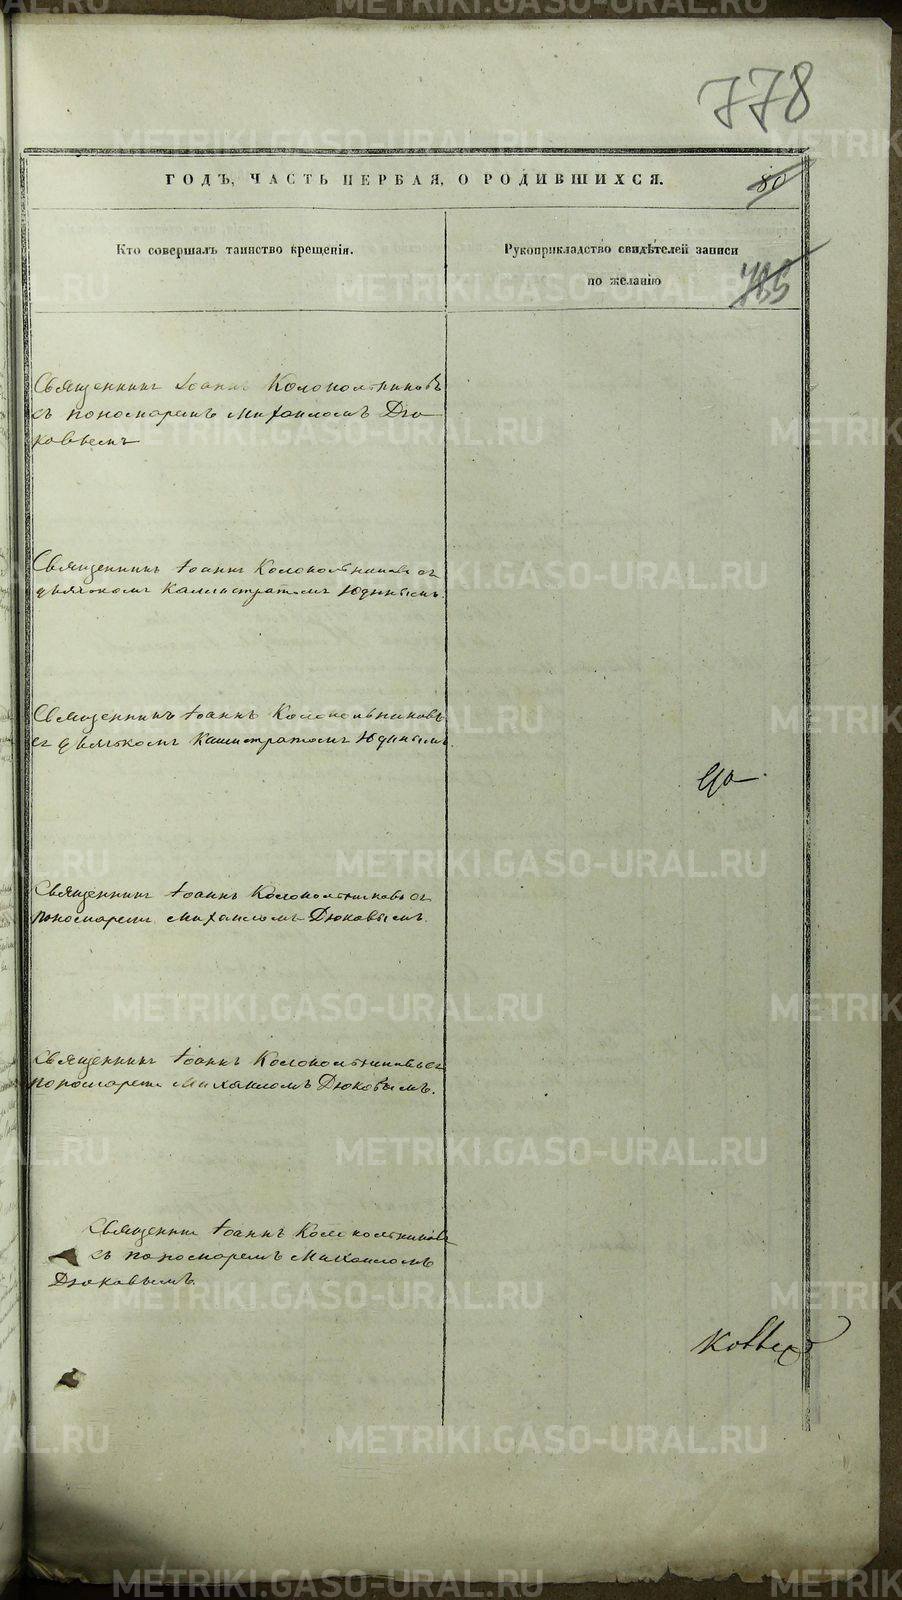 778
ГОДЪ, ЧАСТЬ ПЕРВАЯ, О РОДИВШИХСЯ.
80
Кто совершалъ таинство крещенія.
Рукоприкладство свидѣтелей записи
по желанію
Священникъ Іоаннъ Колокольниковъ
съ пономаремъ Михаиломъ Дю
ковымъ
Священникъ Іоаннъ Колокольниковъ съ
дьячкомъ Каллистратомъ Юдинымъ.
Священникъ Іоаннъ Колокольниковъ
съ дьячкомъ Калистратомъ Юдинымъ.
Священникъ Іоаннъ Колокольниковъ съ
пономаремъ Михаиломъ Дюковымъ.
Священникъ Іоаннъ Колокольниковъ съ
пономаремъ Михаиломъ Дюковымъ.
Священникъ Іоаннъ Колокольниковъ
съ пономаремъ Михаиломъ
Дюковымъ.
METRIKI.GASO-URAL.RU